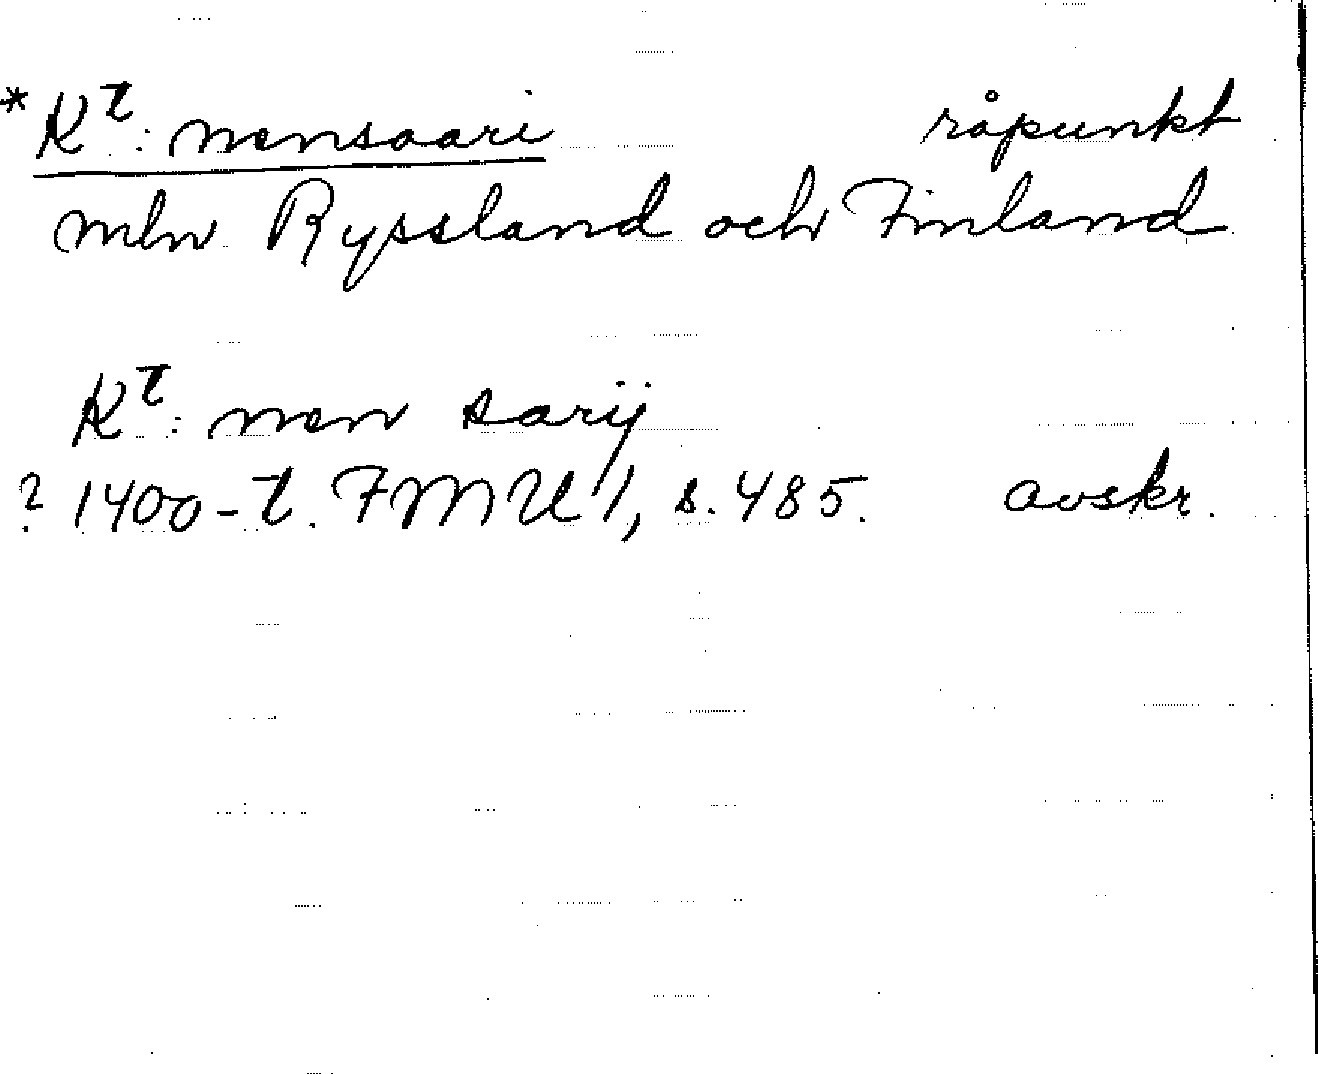 *K^t: nensaari råpunkt
mln Ryssland och Finland
K^t: nen sarij
? 1400-t. FMU 1, s. 485. avskr.